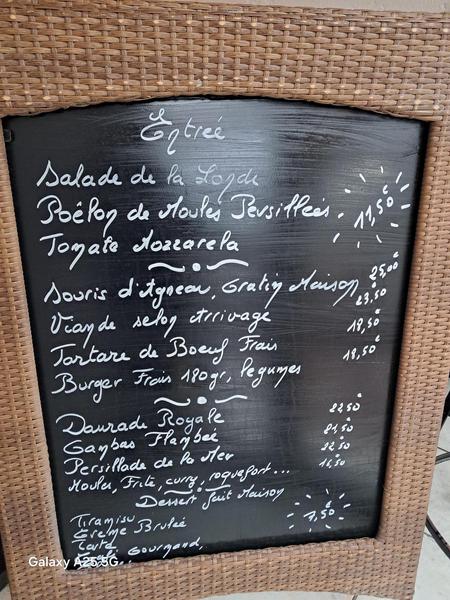 Entrée
Salade de la Londe
Poêlon de Moules Persillées. 11,50€
Tomate Mozzarela
Souris d'Agneau, Gratin Maison 25,00€
Viande selon Arrivage 23,50€
Tartare de Boeuf Frais 18,50€
Burger Frais 180gr, legumes 18,50€
Daurade Royale 22,50€
Gambas Flambée 21,50€
Persillade de la Mer 22,50€
Moules, Frite, curry, roquefort... 16,50€
Dessert fait Maison
Tiramisu 7,50€
Crème Brulée
Tarte
Gourmand,
Galaxy A25 5G